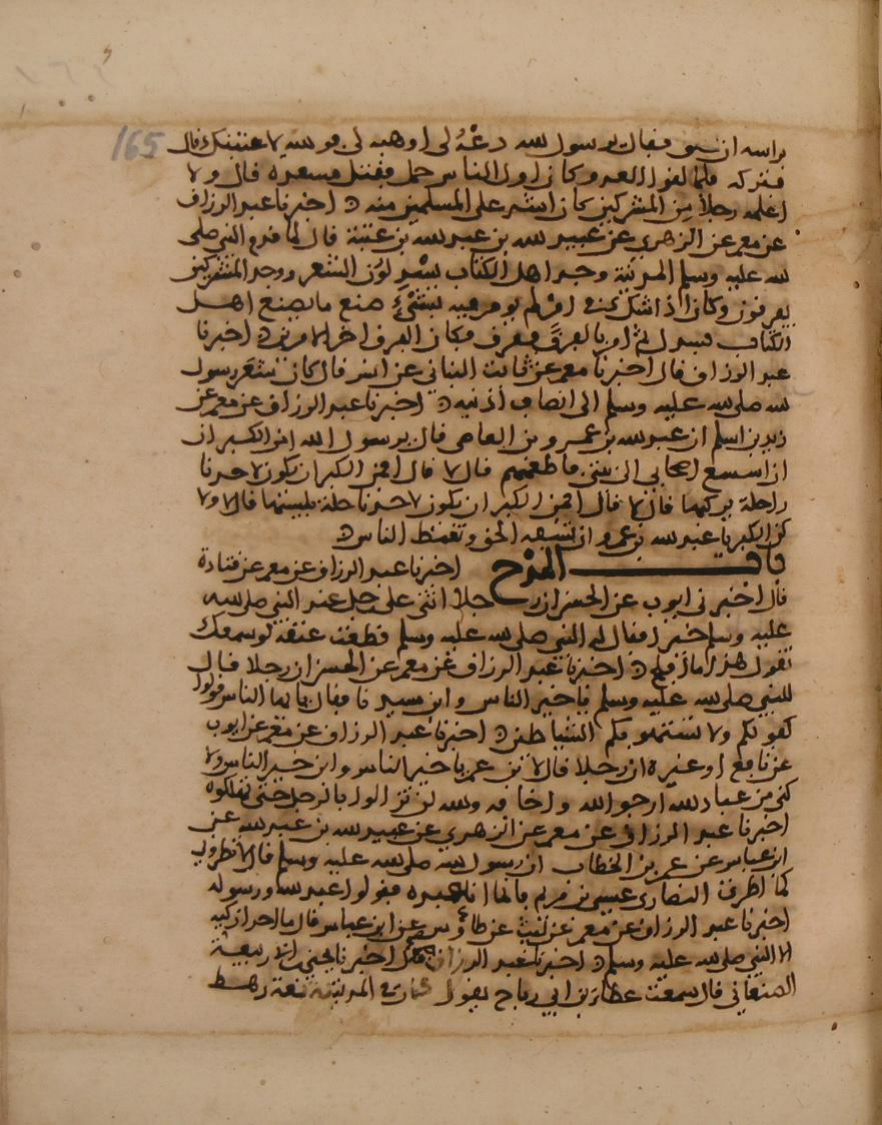 165
براسه ان سو فقال يرسول لله دعه لي او هبه لي فو لله لا عتبنك قال
فتركه فلما لقوا العدو كان اول الناس حمل فقتل مسعده قال ولا
اعلمه رجلا من المشركين كان اشد على المسلمين منه اخبرنا عبد الرزاق
عن معمر عن الزهري عن عبيد لله بن عبد لله بن عتبة قال لما قدم النبي صلى
لله عليه وسلم المدينة وجد اهل الكتاب يسدلون الشعر ووجد المشركين
يفرقون وكان اذا شك في امر لم يومر فيه بشيء صنع ما يصنع اهل
الكتاب فسدل ثم امر بالفرق ففرق فكان الفرق اخر الامرين اخبرنا
عبد الرزاق قال اخبرنا معمر عن ثابت البناني عن انس قال كان شعر رسول
لله صلى لله عليه وسلم الى انصاف اذنيه اخبرنا عبد الرزاق عن معمر عن
زيد بن اسلم ان عبد لله بن عمرو بن العاصي قال يرسول الله امن الكبر ان
اصحابي الى بيتي فاطعمهم قال لا قال افمن الكبر ان يكون لاحدنا
راحلة يركبها قال لا قال افمن الكبر ان يكون لاحدنا حلة يلبسها قال لا و لا
كن الكبر يا عبد لله بن عمرو ان تسفه الحق وتغمط الناس
باب المدح اخبرنا عبد الرزاق عن معمر عن قتادة
قال اخبرني ايوب عن الحسن ان رجلا اثنى على رجل عند النبي صلى لله
عليه وسلم خيرا فقال له النبي صلى لله عليه وسلم قطعت عنقه لو سمعك
تقول هذا ما افلح اخبرنا عبد الرزاق عن معمر عن الحسن ان رجلا قال
للنبي صلى لله عليه وسلم يا خير الناس وابن سيدنا فقال يا يها الناس قولوا
كقولكم ولا تستهويكم الشياطين اخبرنا عبد الرزاق عن معمر عن ايوب
عن نافع او غيره ان رجلا قال لا بن عمر يا خير الناس وابن خير الناس ولا
كني من عباد لله ارجو الله واخافه ولله لن تزالوا بالرجل حتى تهلكوه
اخبرنا عبد الرزاق عن معمر عن الزهري عن عبيد لله بن عبد لله عن
ابن عباس عن عمر بن الخطاب ان رسول لله صلى لله عليه وسلم قال لا تطروني
كما اطرت النصارى عيسى بن مريم فانما انا عبده فقولوا عبد لله ورسوله
اخبرنا عبد الرزاق عن معمر عن ليث عن طاؤس عن ابن عباس قال ما احد ازكيه
الا النبي صلى لله عليه وسلم اخبرنا عبد الرزاق قال اخبرنا يحيى بن ربيعة
الصنعاني قال سمعت عطاء بن ابي رباح يقول كان في المدينة تسعة رهط